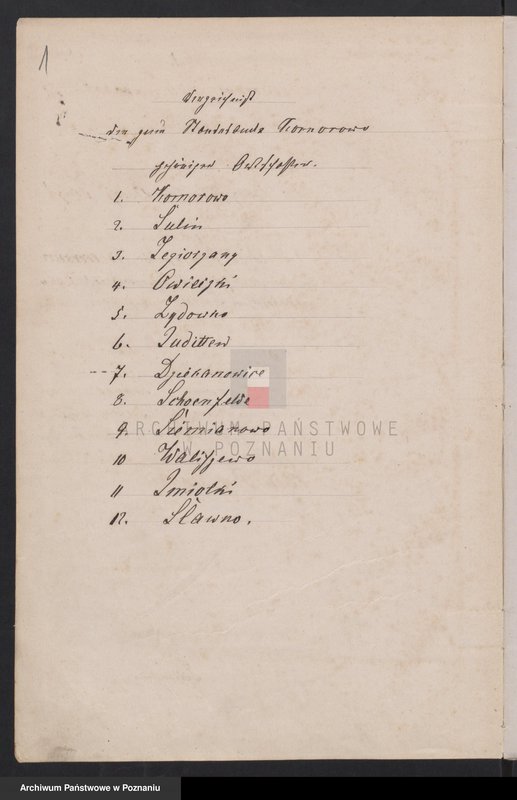 1
Verzeichniß
der zum Standesamte Komorowo
gehörigen Ortschaften.
1. Komorowo
2. Sulin
3. Zegiorzany
4. Owieczki
5. Zydowko
6. Judittew
7. Dziekanowice
8. Schoenfelde
9. Siemianowo
10 Waliszewo
11 Imiołki
12. Sławno.
ARCHIWUM PAŃSTWOWE
W POZNANIU
Archiwum Państwowe w Poznaniu